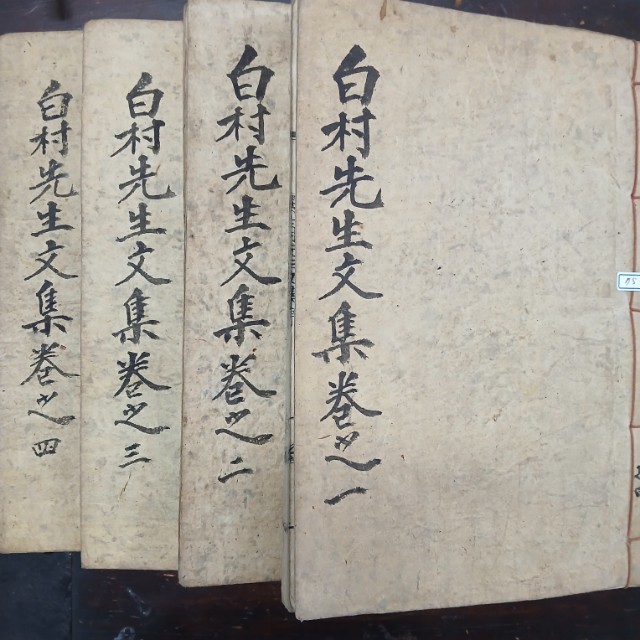 白村先生文集卷之一
白村先生文集卷之二
白村先生文集卷之三
白村先生文集卷之四